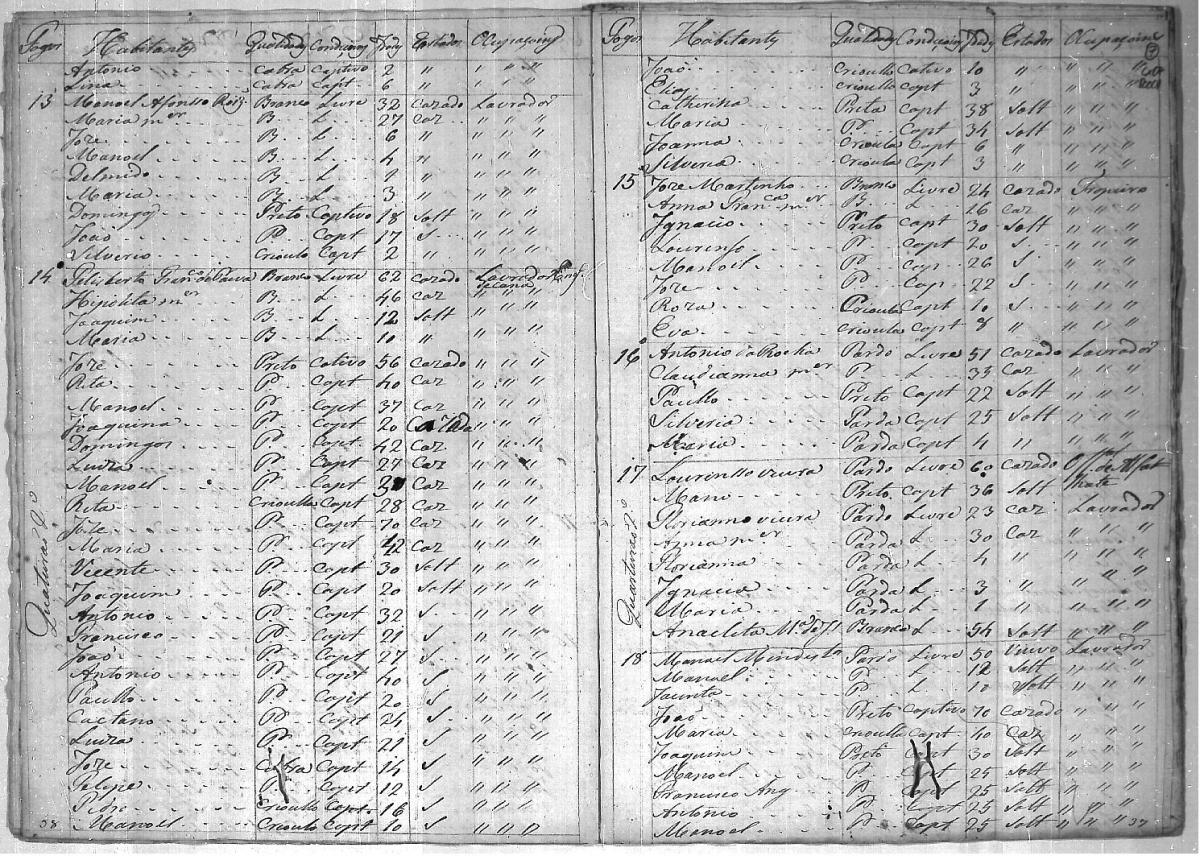 Fogos Habitantes Qualidades Condições Idades Estados Ocupaçoins
Antonio Cabra Captivo 2 " " " "
Lina Cabra Capt 6 " " " "
13 Manoel Afonso Roiz Branco Livre 32 Cazado Lavrador
Maria mer B. L. 27 Caz " " "
Joze B. L. 6 " " " "
Manoel B. L. 4 " " " "
B. L. 1 " " " "
Maria B. L. 3 " " " "
Domingos Preto Captivo 18 Solt " " "
João P. Capt 17 S. " " "
Silverio Crioulo Capt 2 " " " "
14 Felisberto Franco de Paiva Branco Livre 62 Cazado Lavrador
de cana
Hipolita mer B. L. 46 Caz " " "
Joaquim B. L. 12 Solt " " "
Maria B. L. 10 " " " "
Joze Preto Cativo 56 Cazado " " "
Rita P. Capt 40 Caz " " "
Manoel P. Capt 37 Caz " " "
Joaquina P. Capt 20 Cazada " " "
Domingos P. Capt 42 Caz " " "
Luiza P. Capt 27 Caz " " "
Manoel P. Capt Caz " " "
Rita Crioulla Capt 28 Caz " " "
Joze P. Capt 70 Caz " " "
Maria P. Capt 42 Caz " " "
Vicente P. Capt 30 Solt " " "
Joaquim P. Capt 20 Solt " " "
Antonio P. Capt 32 S. " " "
Francisco P. Capt 21 S. " " "
João P. Capt 27 S. " " "
Antonio P. Capt 40 S. " " "
Paullo P. Capt 20 S. " " "
Caetano P. Capt 24 S. " " "
Luiza P. Capt 21 S. " " "
Joze Cabra Capt 14 S. " " "
Felipe P. Capt 12 S. " " "
Pedro Crioullo Capt 16 S. " " "
Manoel Crioulo Capt 10 S " " "
Fogos Habitantes Qualidades Condições Idades Estados Ocupaçoins
João Crioullo Cativo 10 " " " "
Crioullo Capt 3 " " " "
Catherina Preta Capt 38 Solt " " "
Maria P. Capt 34 Solt " " "
Joanna Crioula Capt 6 " " " "
Silveria Crioula Capt 3 " " " "
15 Joze Martinho Branco Livre 24 Cazado Tropeiro
Anna Franca mer B. L. 26 Caz " " "
Ignacio Preto Capt 30 Solt " " "
Lourenso P. Capt 20 S. " " "
Manoel P. Capt 26 S. " " "
Joze P. Cap. 22 S. " " "
Roza Crioula Capt 10 S. " " "
Eva Crioula Capt 8 " " " "
16 Antonio da Rocha Pardo Livre 51 Cazado Lavrador
Claudianna mer P. L. 33 Caz " " "
Paullo Preto Capt 22 Solt " " "
Silveria Parda Capt 25 Solt " " "
Maria Parda Capt 4 " " " "
17 Lourensso vieira Pardo Livre 60 Cazado Offal de Alfai
hate
Preto Capt 36 Solt " " "
Florianno vieira Pardo Livre 23 Caz Lavrador
Anna mer Parda L. 30 Caz " " "
Florianna Parda L. 4 " " " "
Ignacia Parda L. 3 " " " "
Maria Parda L. 1 " " " "
Anaclita Ma. de Js. Branca L. 54 Solt " " "
18 Manoel Mendes Pardo Livre 50 Viuvo Lavrador
Manoel P. L. 12 Solt " " "
Jacinta P. L. 10 Solt " " "
João Preto Captivo 70 Cazado " " "
Maria Crioulla Capt 40 Caz " " "
Joaquim Preto Capt 30 Solt " " "
Manoel P. Capt 25 Solt " " "
Francisco Ang P. Capt 25 Solt " " "
Antonio P. Capt 25 Solt " " "
Manoel P. Capt 25 Solt " " "